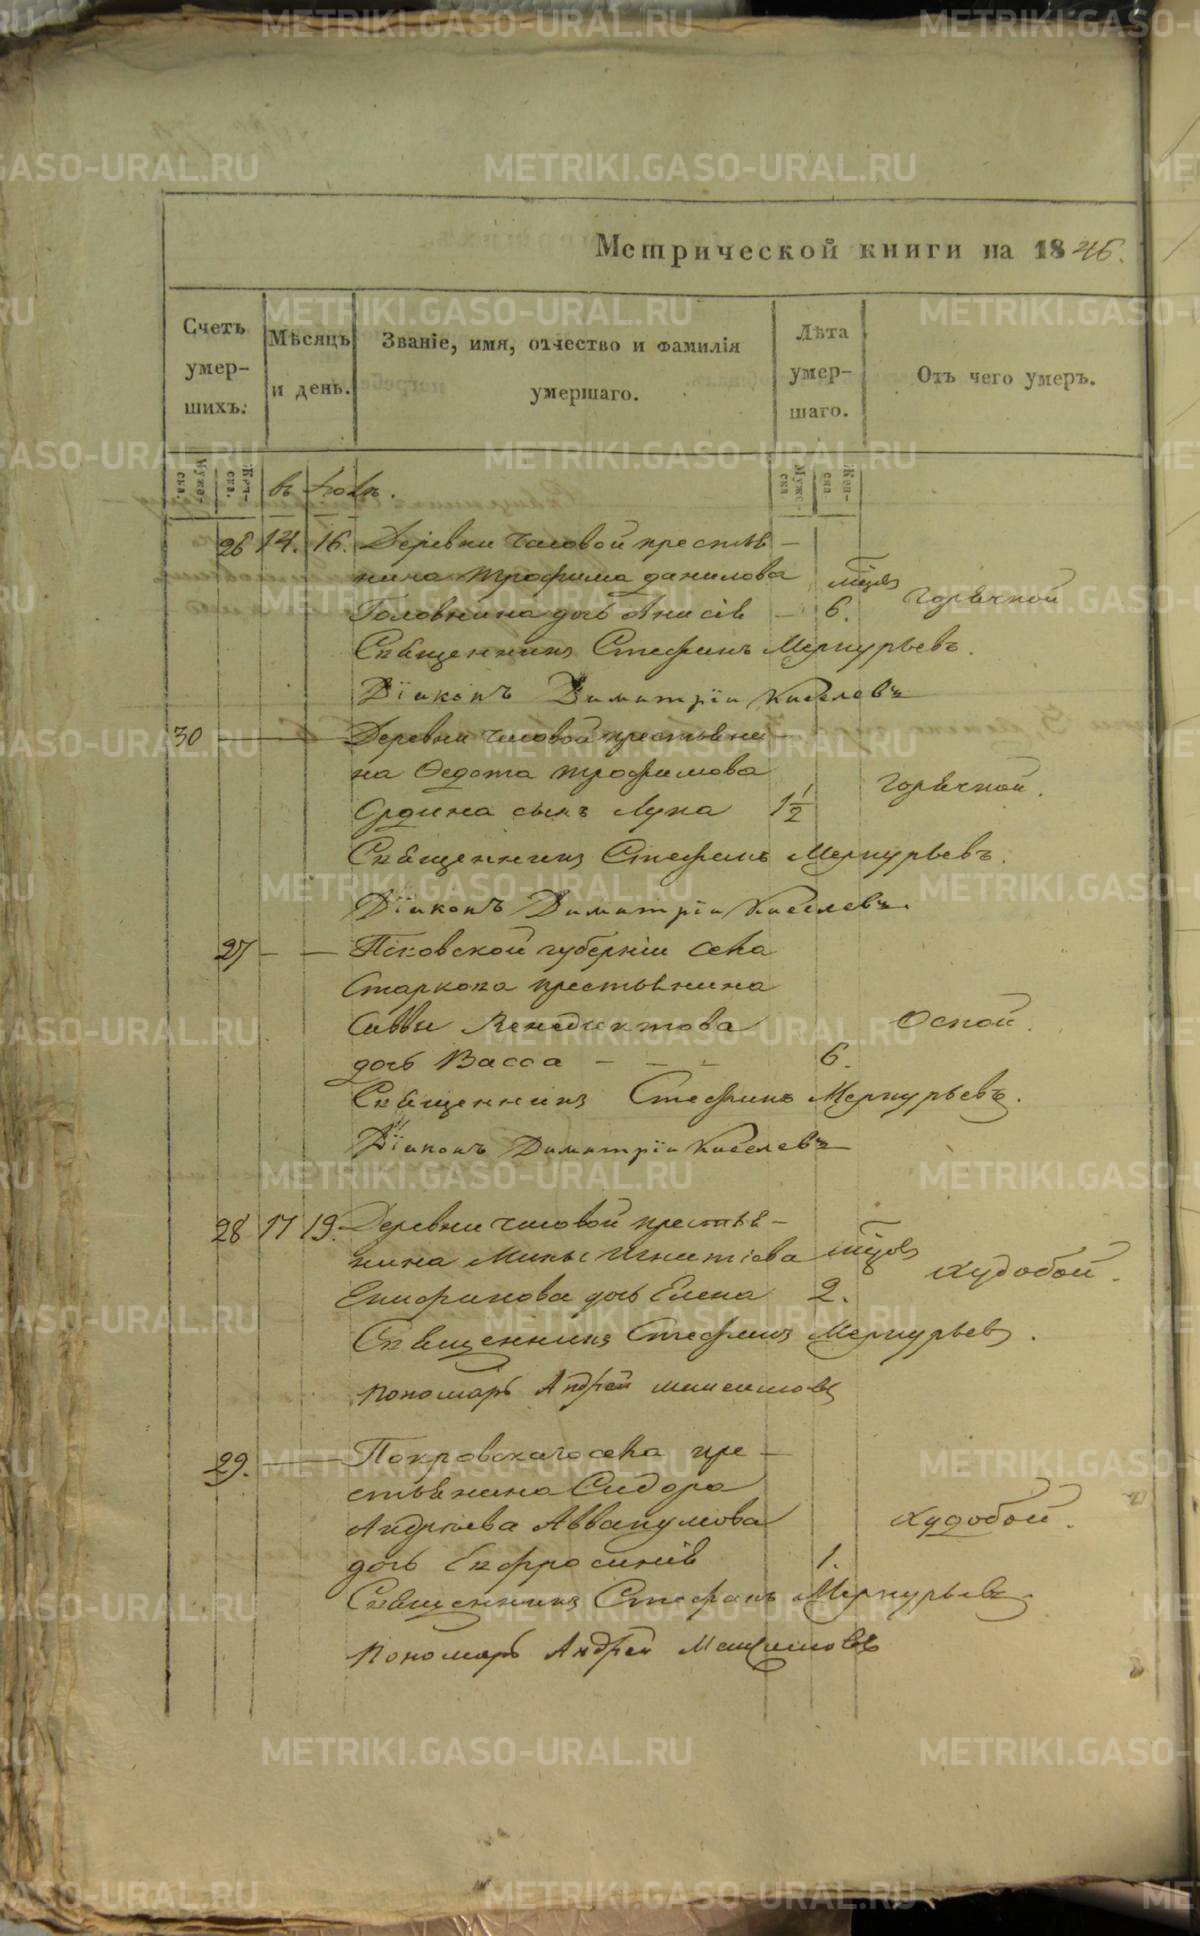 Метрической книги на 1846.
Счетъ умер-шихъ.
Мѣсяцъ и день.
Званіе, имя, отчество и фамилія умершаго.
Лѣта умер-шаго.
Отъ чего умеръ.
Муже-ска.
Жен-ска.
въ Іюлѣ.
Муже-ска
Жен-ска
26 14. 16. Деревни Часовой крестья-
нина Трофима Данилова мѣсяц
Головнина дочь Анисія - 6. горячкой
Священникъ Стефанъ Меркурьевъ.
Діаконъ Димитрій Киселевъ
30 Деревни Часовой крестьяни-
на Федота Трофимова горячкой.
Ордина сынъ Лука 1 1/2
Священникъ Стефанъ Меркурьевъ.
Діаконъ Димитрій Киселевъ.
27 - - Псковской губерніи села
Старкова крестьянина
Саввы Венедиктова Оспой.
дочь Васса - - - 6.
Священникъ Стефанъ Меркурьевъ.
Діаконъ Димитрій Киселевъ
28 17 19. Деревни Часовой крестья-
нина Мины Игнатіева мѣсяц
Епифанова дочь Елена 2. худобой.
Священникъ Стефанъ Меркурьевъ.
Пономарь Андрей Максимовъ
29. Покровскаго села кре-
стьянина Сидора
Андреева Аввакумова худобой.
дочь Евфросинія 1.
Священникъ Стефанъ Меркурьевъ
Пономарь Андрей Максимовъ
METRIKI.GASO-URAL.RU